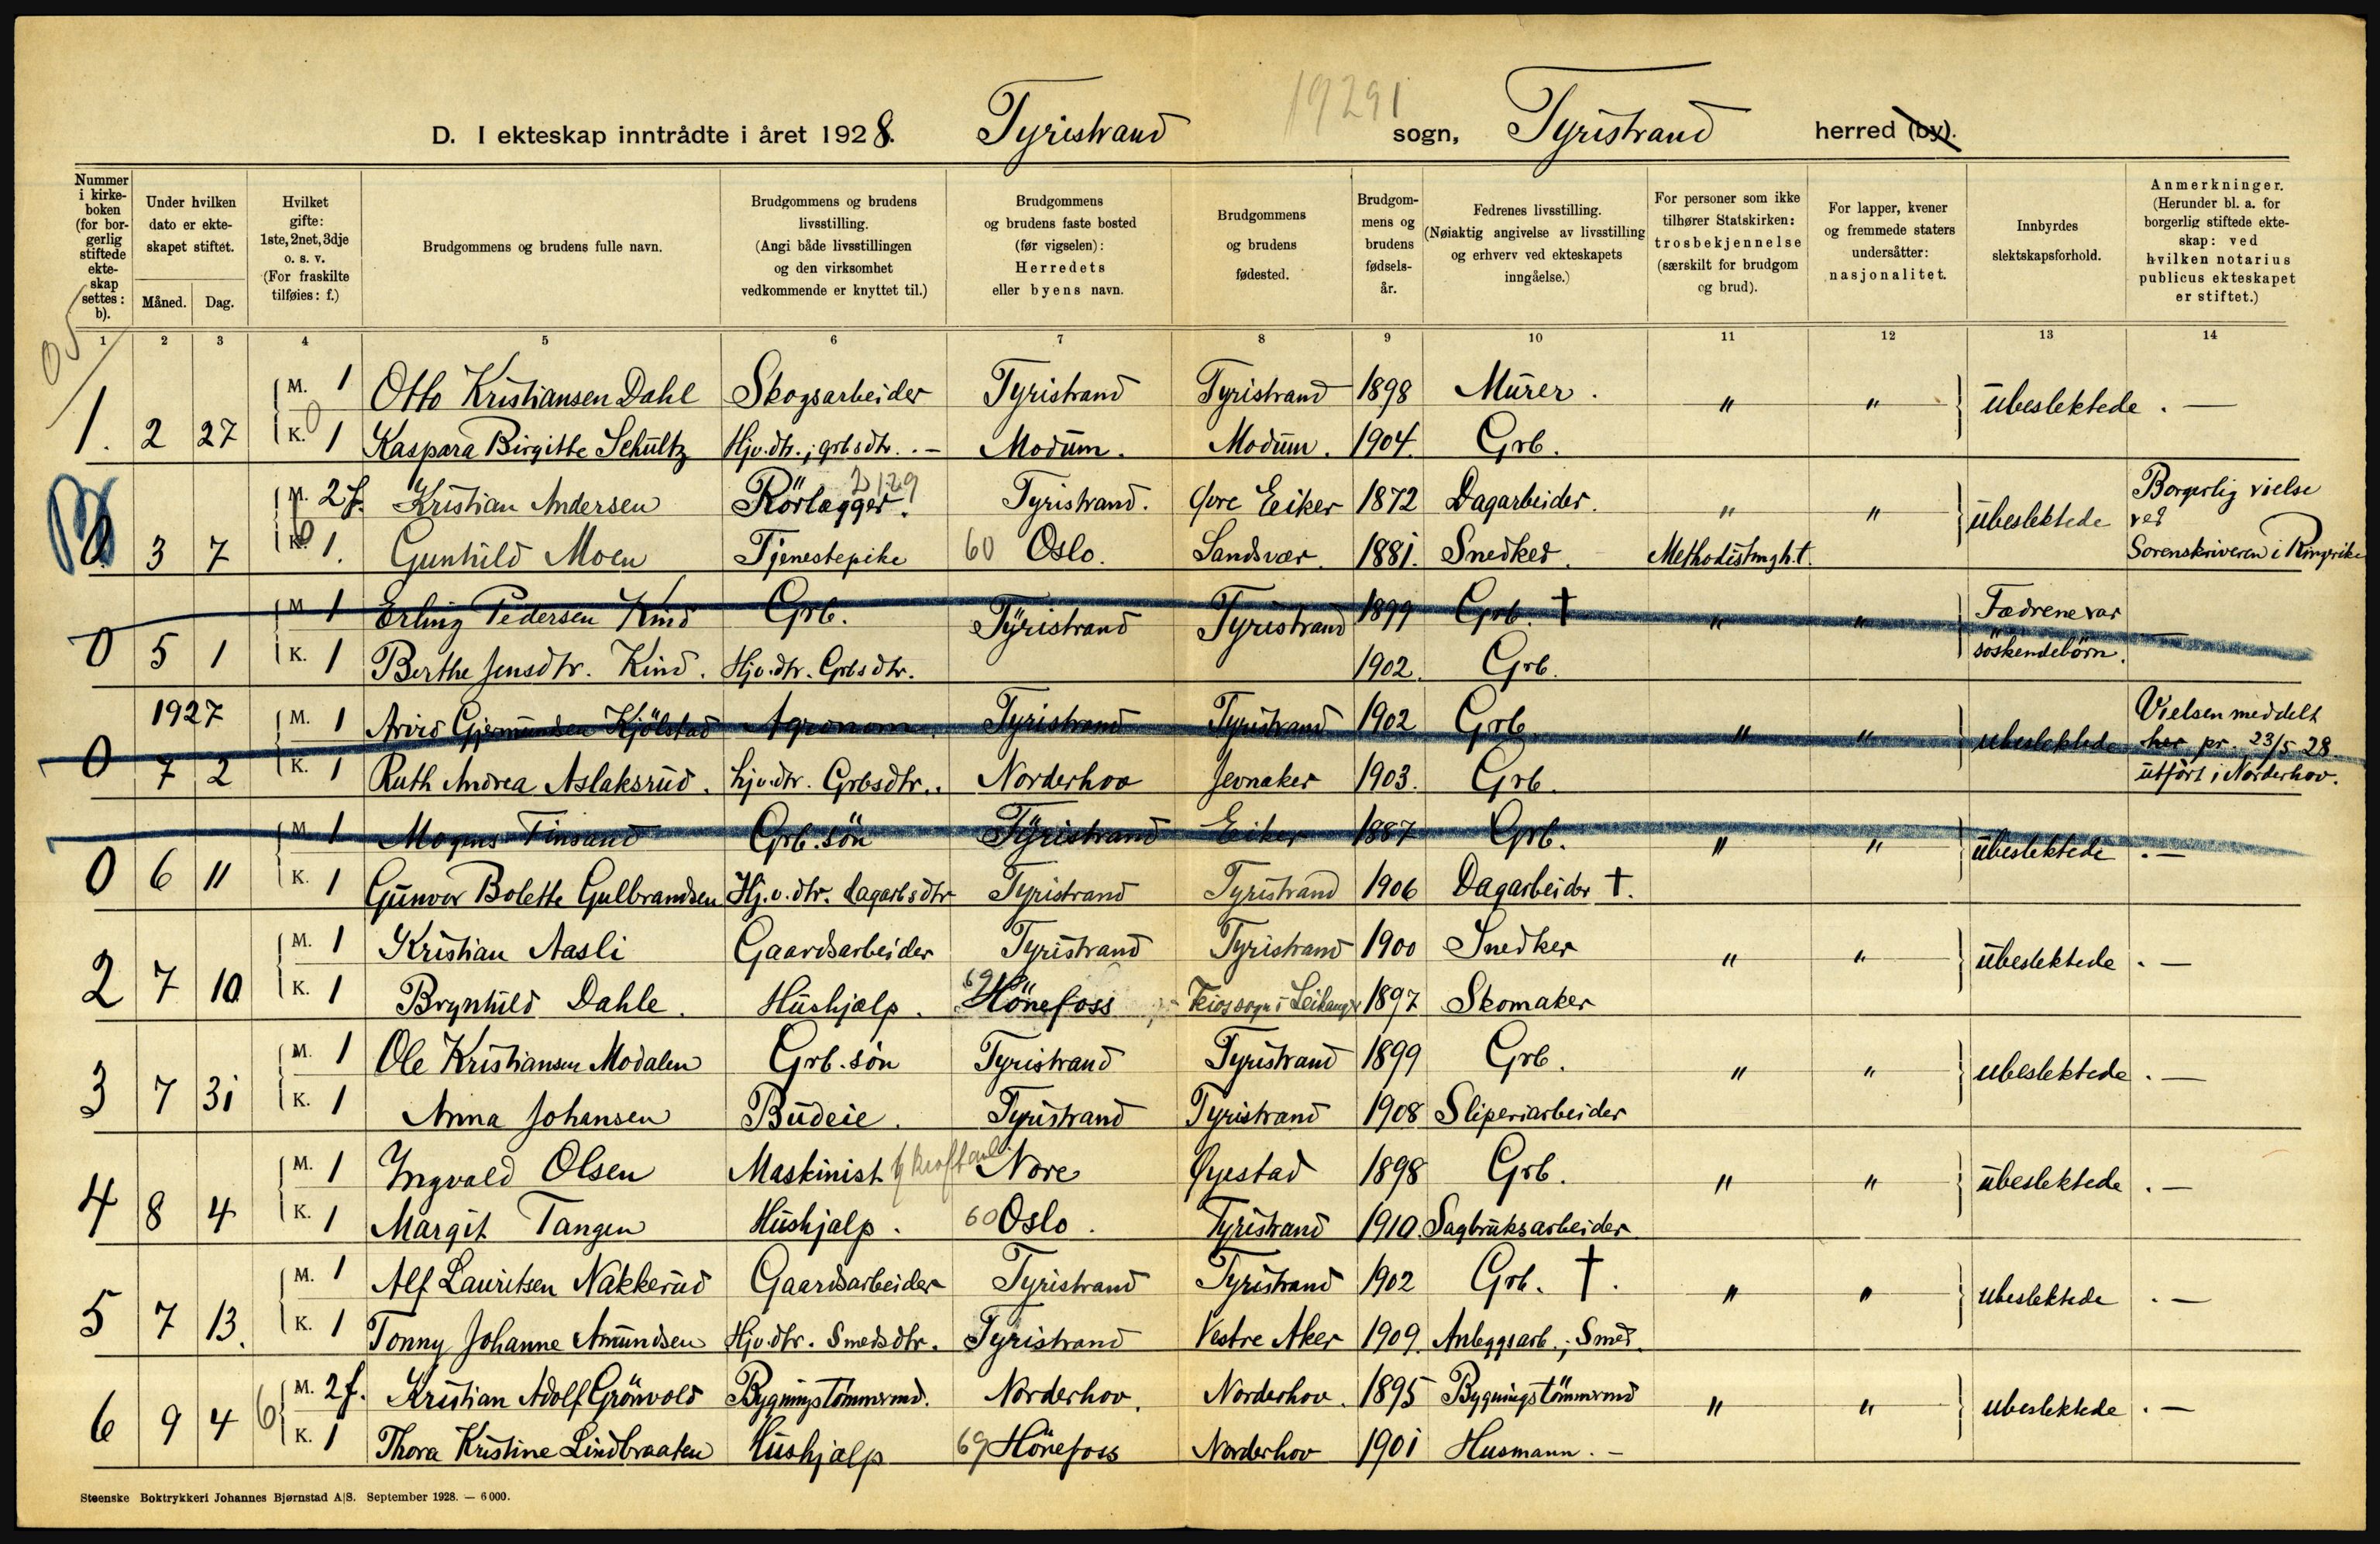 19291
D. I ekteskap inntrådte i året 1928. Tyristrand sogn, Tyristrand herred (by).
Nummer i kirke-boken (for bor-gerlig stiftede ekte-skap settes: b).
Under hvilken dato er ekte-skapet stiftet.
Måned. Dag.
Hvilket gifte: 1ste, 2net, 3dje o. s. v. (For fraskilte tilføies: f.)
Brudgommens og brudens fulle navn.
Brudgommens og brudens livsstilling. (Angi både livsstillingen og den virksomhet vedkommende er knyttet til.)
Brudgommens og brudens faste bosted (før vigselen): Herredets eller byens navn.
Brudgommens og brudens fødested.
Brudgom-mens og brudens fødsels-år.
Fedrenes livsstilling. (Nøiaktig angivelse av livsstilling og erhverv ved ekteskapets inngåelse.)
For personer som ikke tilhører Statskirken: trosbekjennelse (særskilt for brudgom og brud).
For lapper, kvener og fremmede staters undersåtter: nasjonalitet.
Innbyrdes slektskapsforhold.
Anmerkninger. (Herunder bl. a. for borgerlig stiftede ekte-skap: ved hvilken notarius publicus ekteskapet er stiftet.)
1 2 3 4 5 6 7 8 9 10 11 12 13 14
M. 1 Otto Kristiansen Dahl Skogsarbeider Tyristrand Tyristrand 1898 Murer. " " ubeslektede. —
1. 2 27 K. 1 Kaspara Birgitte Schultz Hjv. dtr. ; grbsdtr. . — Modum. Modum. 1904. Grb.
M. 2 f. Kristian Andersen Rörlægger. Tyristrand. Øvre Eiker 1872 Dagarbeider. " " ubeslektede Borgerlig vielse ved Sorenskriveren i Ringerike
3 7 K. 1. Gunhild Moen Tjenestepike 60 Oslo. Sandsvær. 1881. Snedker. Methodistmgh.t.
M. 1 Erling Pedersen Kind Grb. Tyristrand Tyristrand 1899 Grb. † " " Fædrene var söskendebörn. —
0 5 1 K. 1 Berthe Jensdtr. Kind. Hjv. dtr. Grbsdtr. 1902. Grb.
1927 M. 1 Arvid Gjermundsen Kjölstad Agronom. Tyristrand Tyristrand 1902 Grb. " " ubeslektede Vielsen meddelt her pr. 23/5 28 utfört i Norderhov.
0 7 2 K. 1 Ruth Andrea Aslaksrud. hjv. dtr. Grbsdtr.. Norderhov Jevnaker 1903. Grb.
M. 1 Mogens Finsand Grb. sön Tyristrand Eiker 1887 Grb. " " ubeslektede . —
0 6 11 K. 1 Gunvor Bolette Gulbrandsen Hj. v. dtr. dagarbsdtr Tyristrand Tyristrand 1906 Dagarbeider †.
M. 1 Kristian Aasli Gaardsarbeider Tyristrand Tyristrand 1900 Snedker " " ubeslektede . —
2 7 10 K. 1 Brynhild Dahle. Hushjælp. 69 Hönefoss Feios sogn i Leikanger 1897 Skomaker
M. 1 Ole Kristiansen Modalen Grb. sön Tyristrand Tyristrand 1899 Grb. " " ubeslektede . —
3 7 31 K. 1 Anna Johansen Budeie. Tyristrand Tyristrand 1908 Sliperiarbeider
M. 1 Ingvald Olsen Maskinist Nore Øyestad 1898 Grb. " " ubeslektede . —
4 8 4 K. 1 Margit Tangen Hushjælp. 60 Oslo. Tyristrand 1910. Sagbruksarbeider
M. 1 Alf Lauritsen Nakkerud Gaardsarbeider Tyristrand Tyristrand 1902 Grb. †. " " ubeslektede . —
5 7 13. K. 1 Tonny Johanne Amundsen Hjv. dtr. Smedsdtr. Tyristrand Vestre Aker 1909. Anleggsarb. ; Smed.
M. 2 f. Kristian Adolf Grönvold Bygningstömmermd. Norderhov. Norderhov. 1895 Bygningstömmermd " " ubeslektede . —
6 9 4 6 K. 1 Thora Kristine Lindbraaten Hushjælp 69 Hönefoss Norderhov 1901 Husmann. —
Steenske Boktrykkeri Johannes Bjørnstad A|S. September 1928. — 6 000.